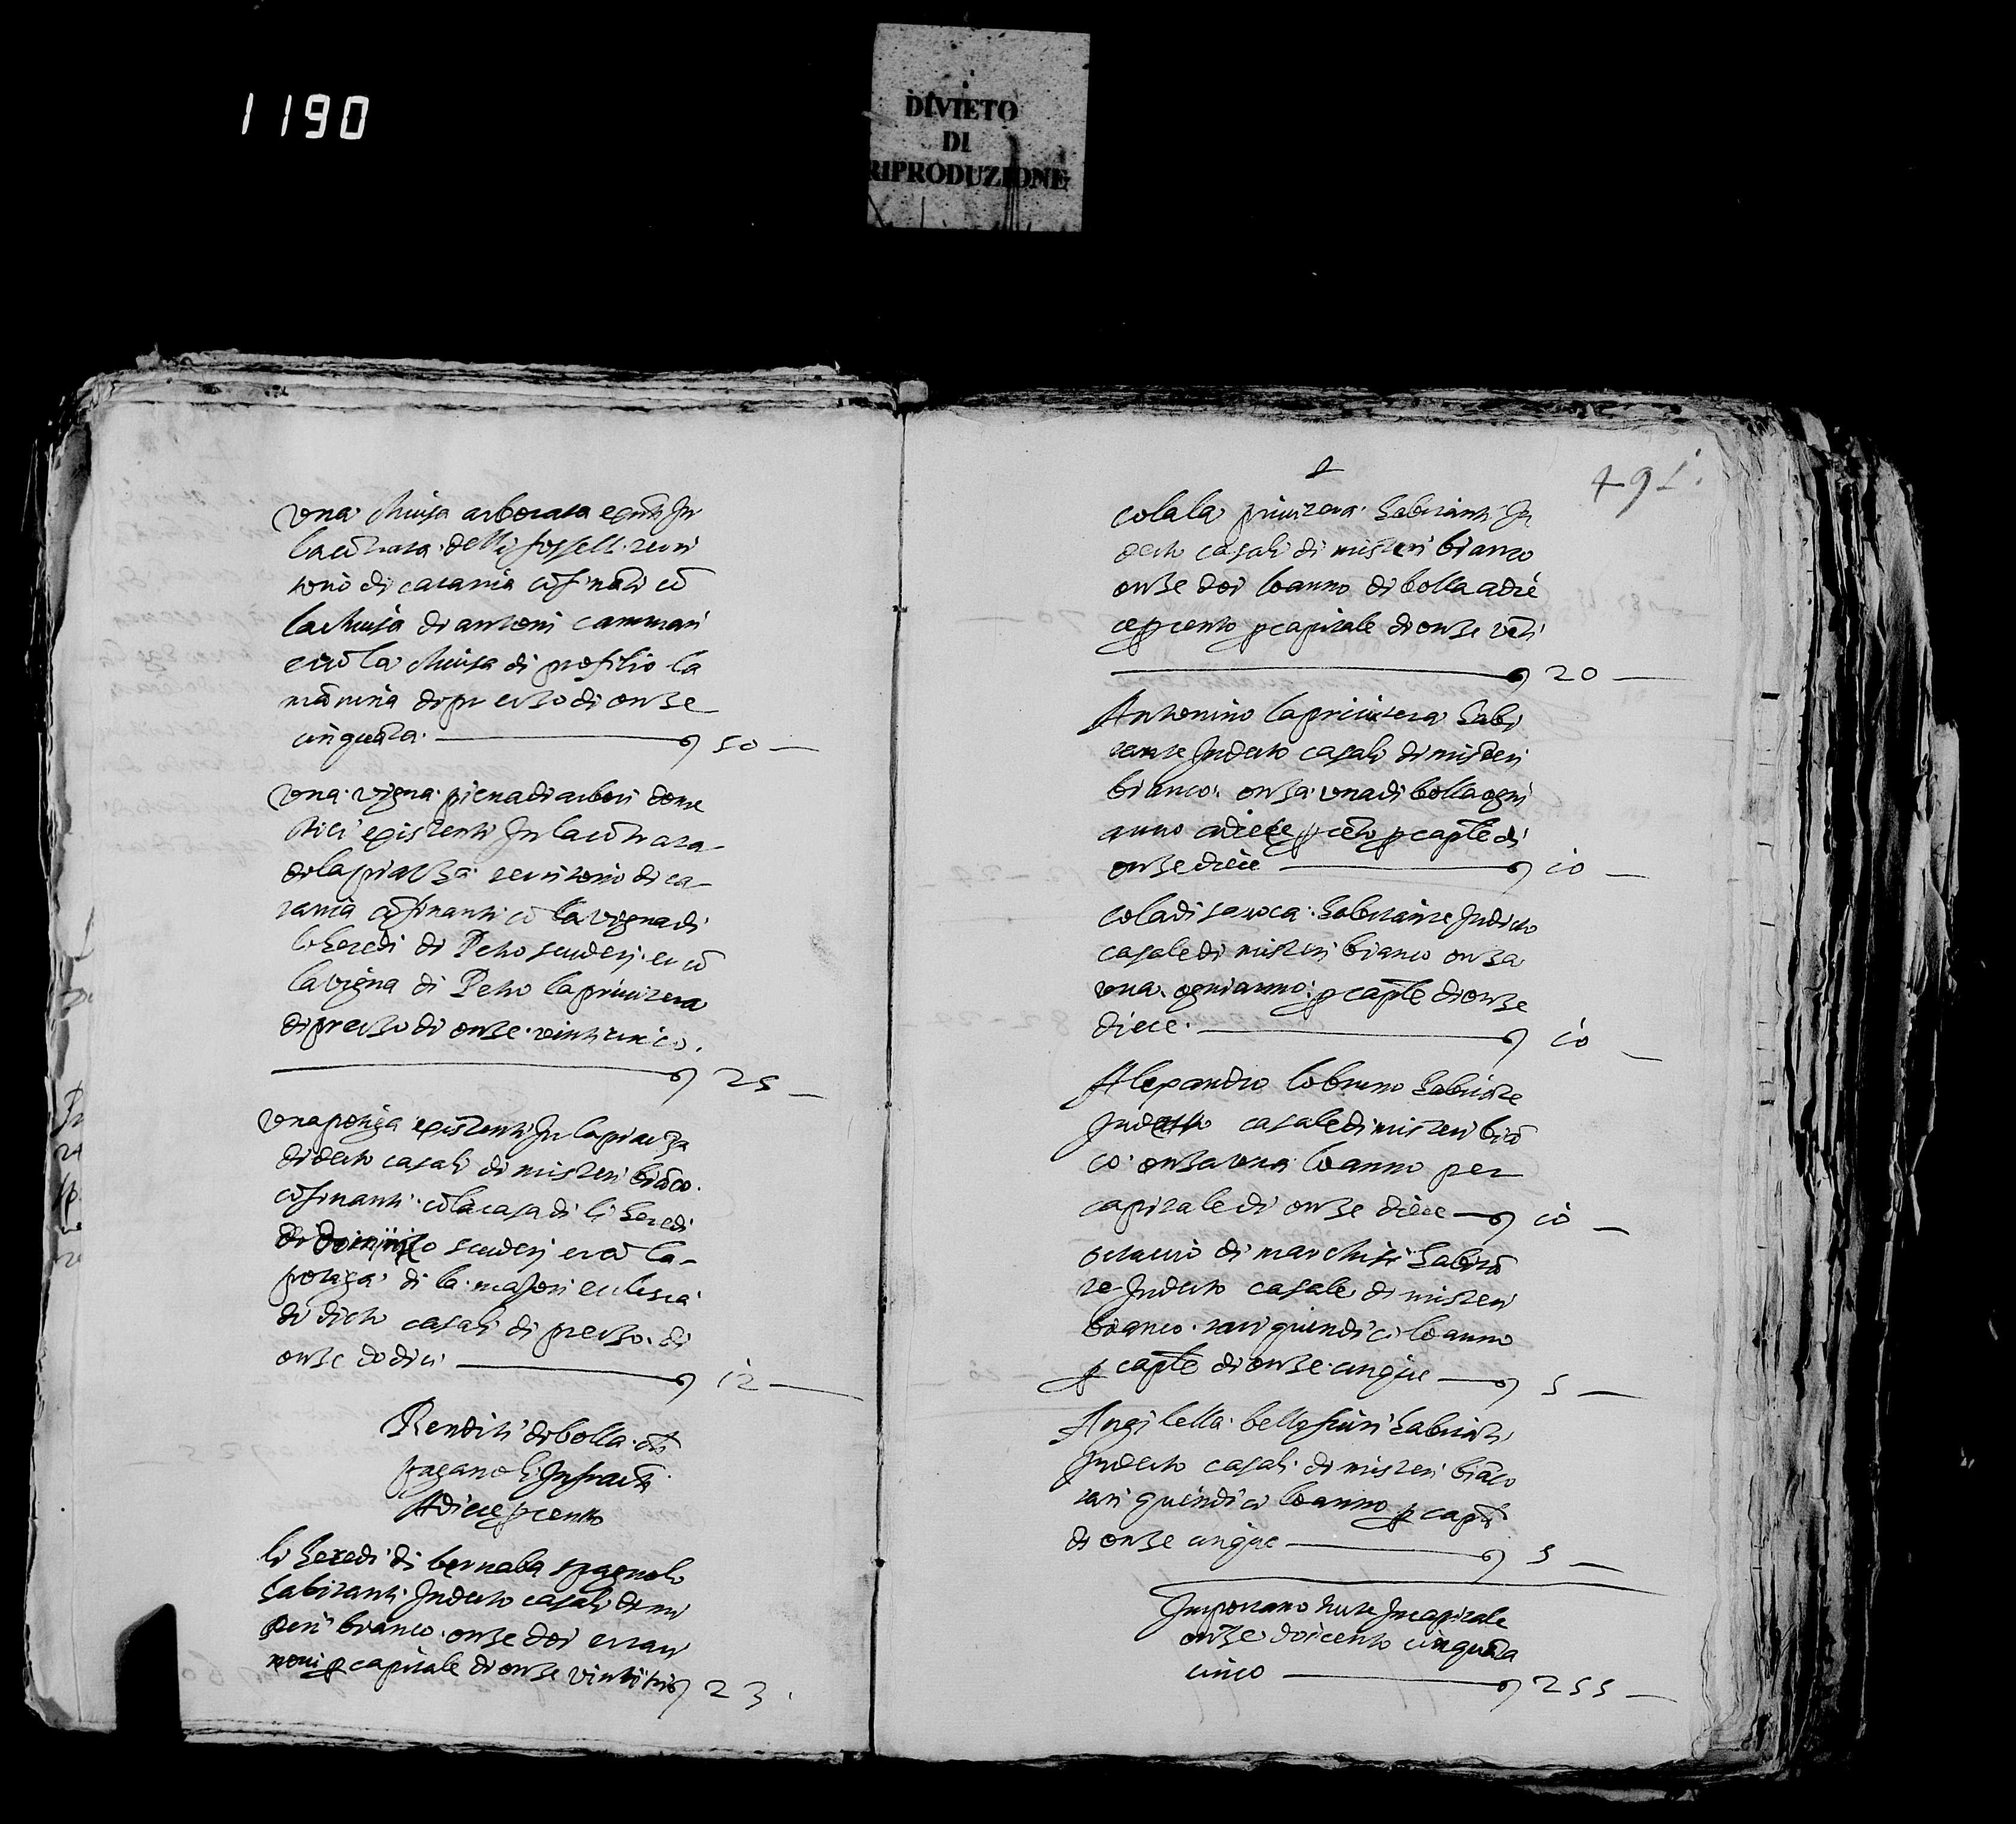 1190
DIVIETO
DI
RIPRODUZIONE
una chiusa arborata existenti In
la cõtrata delli fosselli terri
torio di catania cõfinãti cõ
la chiusa di antoni cammari
et cõ la chiusa di profilio la
mãnina di preczo di onze
cinquãta. 50
una vigna piena di arbori dome
stici existenti In la cõtrata
di la piacza territorio di ca
tania cõfinanti cõ la vigna di
li heredi di Petro scuderi et cõ
la vigna di Petro la privitera
di preczo di onze vinticinco.
25
una potiga existenti In la piacza
di detto casali di misteri biãco.
cõfinanti cõ la casa di li heredi
di scuderi et cõ la
potiga di la majori ecclesia
di dicto casali di preczo di
onze dodici 12
Renditi di bolla
pagano li Infracti
A diece p cento
li heredi di bernaba spagnolo
habitanti In detto casali di mi
steri bianco onze doi et tari
novi p capitale di onze vintitrì 23.
491.
cola la privitera habitanti In
detto casali di misteri bianco
onze doi lo anno di bolla a die
ce p cento p capitale di onze vẽti
20
Antonino la privitera habi
tante In detto casali di misteri
bianco onza una di bolla ogni
anno a diece p cẽto p caple di
onze diece 10
cola di habitante In ditto
casale di misteri bianco onza
una ogni anno p caple di onze
diece. 10
Alexandro lo bruno habitãte
In detto casale di misteri biã
co onza una lo anno per
capitale di onze diece 10
octavio di marchisi habitã
te In detto casale di misteri
bianco tari quindici lo anno
p caple di onze cinque 5
Angilella bellofiuri habitãti
In detto casali di misteri biãco
tari quindici lo anno p caple
di onze cinque 5
Importano tutte In capitale
onze doicento cinquãta
cinco 255